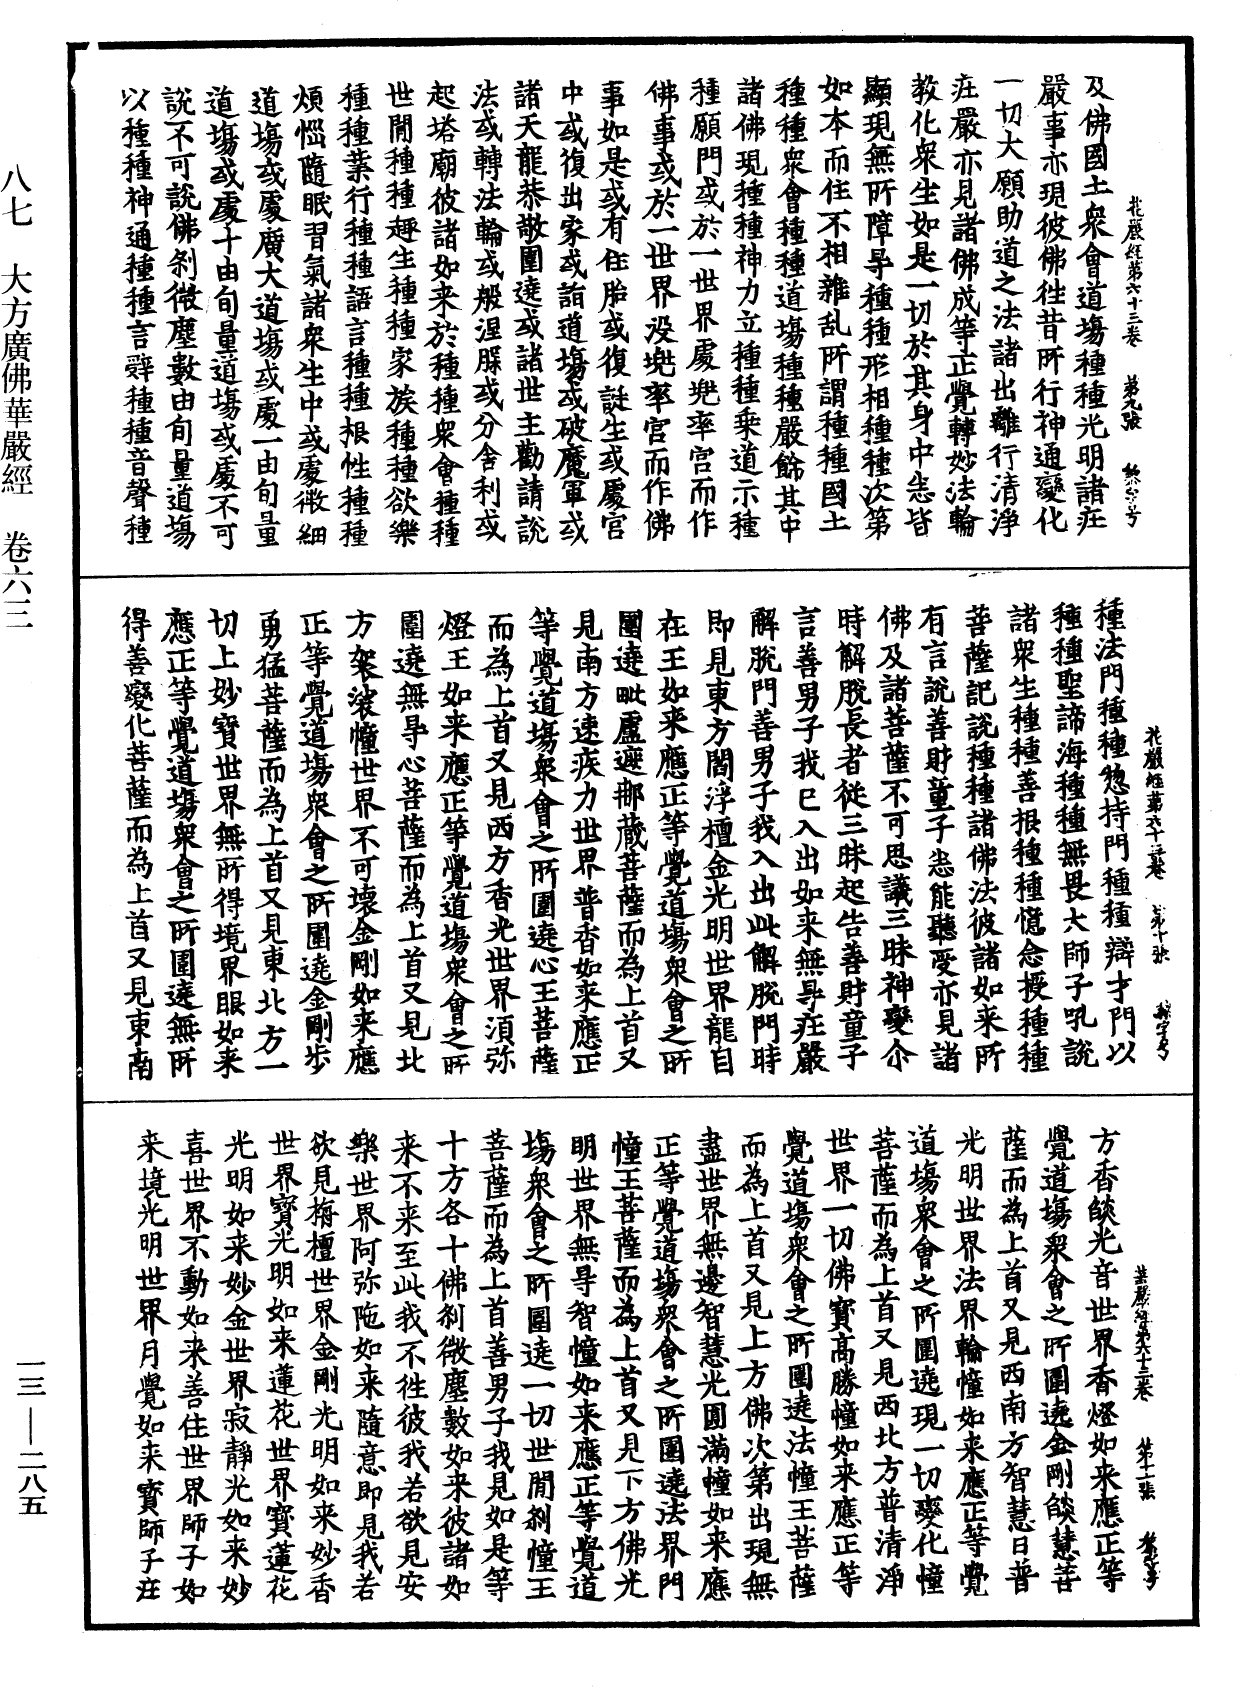 八七　大方廣佛華嚴經　卷六三
一三—二八五
及佛國土衆會道場種種光明諸庄
嚴事亦現彼佛徃昔所行神通變化
一切大願助道之法諸出離行清淨
庄嚴亦見諸佛成等正覺轉妙法輪
教化衆生如是一切於其身中悉皆
顯現無所障㝵種種形相種種次第
如本而住不相雜乱所謂種種國土
種種衆會種種道場種種嚴飾其中
諸佛現種種神力立種種乗道示種
種願門或於一世界處兠率宫而作
佛事或於一世界没兠率宫而作佛
事如是或有住胎或復誕生或處宫
中或復出家或詣道場或破魔軍或
諸天龍恭敬圍遶或諸世主勸請說
法或轉法輪或般涅槃或分舍利或
起塔廟彼諸如来於種種衆會種種
世閒種種趣生種種家族種種欲樂
種種業行種種語言種種根性種種
煩惱隨眠習氣諸衆生中或處微細
道場或處廣大道場或處一由旬量
道場或處十由旬量道場或處不可
說不可說佛刹微塵數由旬量道場
以種種神通種種言辭種種音聲種
花嚴經第六十三卷　第九張
花嚴經第六十三卷　第十張
種法門種種惣持門種種辯才門以
種種聖諦海種種無畏大師子吼說
諸衆生種種善根種種憶念授種種
菩薩記說種種諸佛法彼諸如来所
有言說善財童子悉能聽受亦見諸
佛及諸菩薩不可思議三昧神變尒
時解脫長者從三昧起告善財童子
言善男子我已入出如来無㝵庄嚴
解脫門善男子我入出此解脫門時
即見東方閻浮檀金光明世界龍自
在王如来應正等覺道場衆會之所
圍遶毗盧遮那藏菩薩而為上首又
見南方速疾力世界普香如来應正
等覺道場衆會之所圍遶心王菩薩
而為上首又見西方香光世界須弥
燈王如来應正等覺道場衆會之所
圍遶無㝵心菩薩而為上首又見北
方袈裟幢世界不可壞金剛如来應
正等覺道場衆會之所圍遶金剛步
勇猛菩薩而為上首又見東北方一
切上妙寳世界無所得境界眼如来
應正等覺道場衆會之所圍遶無所
得善變化菩薩而為上首又見東南
方香燄光音世界香燈如来應正等
覺道場衆會之所圍遶金剛燄慧菩
薩而為上首又見西南方智慧日普
光明世界法界輪幢如来應正等覺
道場衆會之所圍遶現一切變化幢
菩薩而為上首又見西北方普清淨
世界一切佛寳高勝幢如来應正等
覺道場衆會之所圍遶法幢王菩薩
而為上首又見上方佛次第出現無
盡世界無邊智慧光圓滿幢如来應
正等覺道場衆會之所圍遶法界門
幢王菩薩而為上首又見下方佛光
明世界無㝵智幢如来應正等覺道
場衆會之所圍遶一切世閒刹幢王
菩薩而為上首善男子我見如是等
十方各十佛刹微塵數如来彼諸如
来不来至此我不徃彼我若欲見安
樂世界阿弥陁如来隨意即見我若
欲見栴檀世界金剛光明如来妙香
世界寳光明如来蓮花世界寳蓮花
光明如来妙金世界寂靜光如来妙
喜世界不動如来善住世界師子如
来境光明世界月覺如来寳師子庄